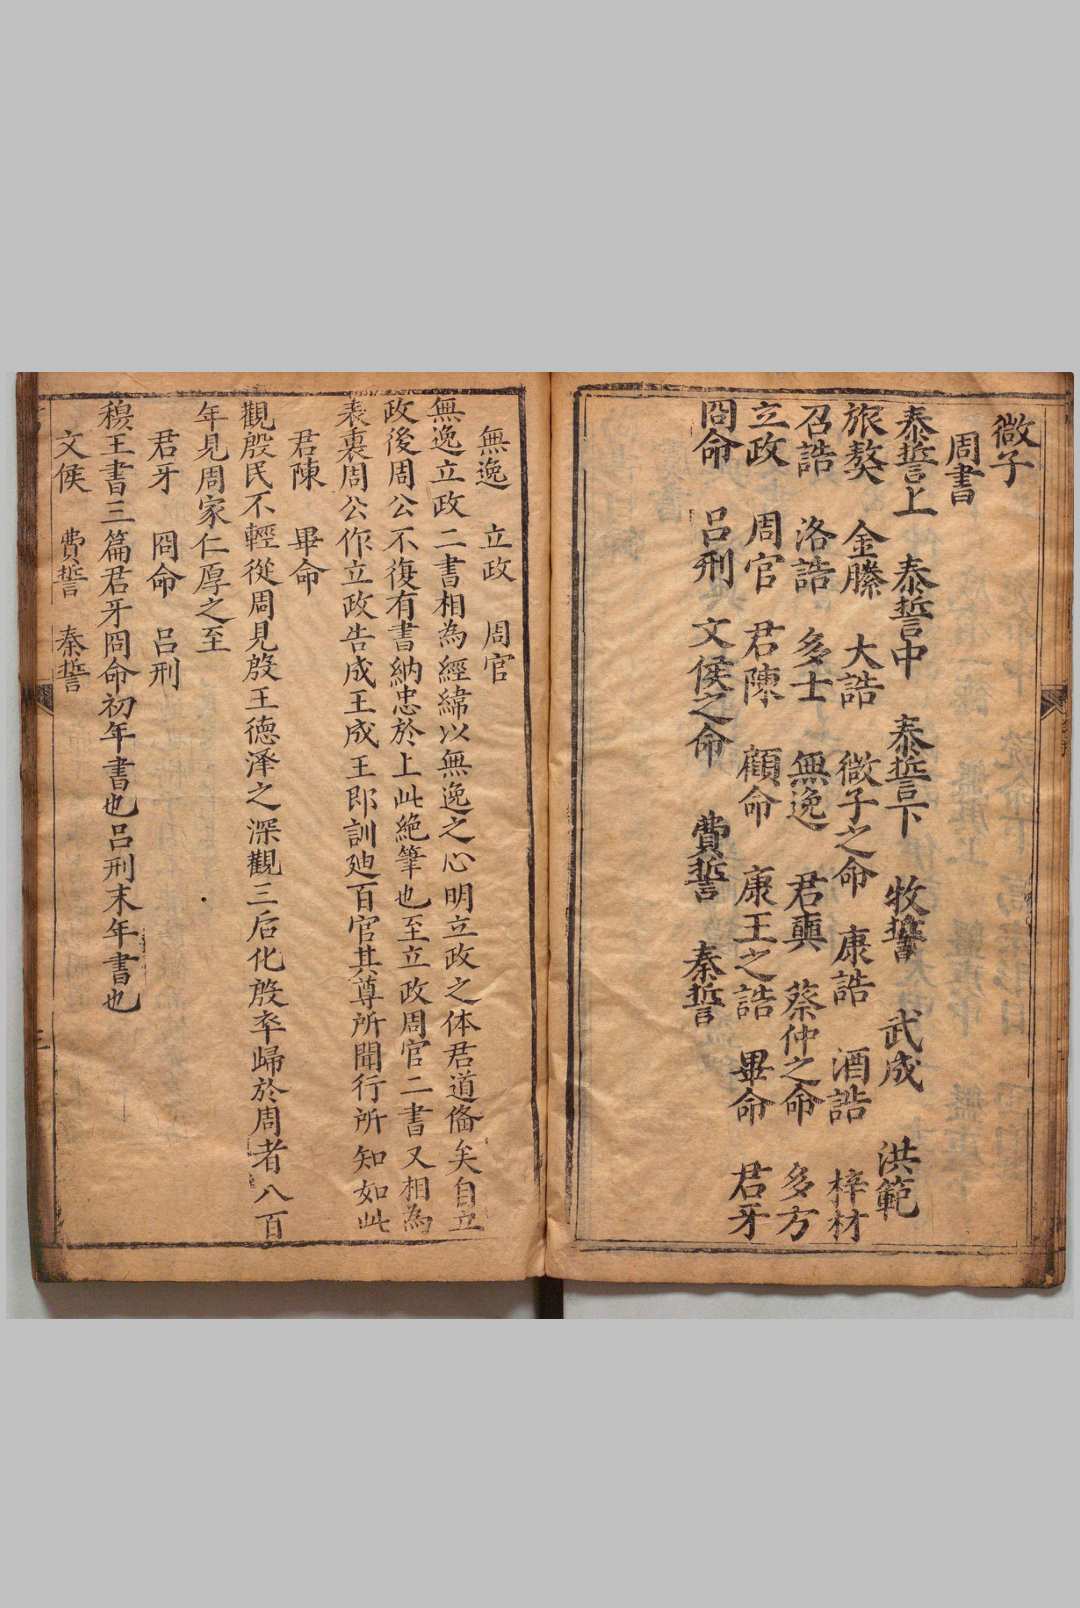 微子
周書
泰誓上 泰誓中 泰誓下 牧誓 武成 洪範
旅獒 金縢 大誥 微子之命 康誥 酒誥 梓材
召誥 洛誥 多士 無逸 君奭 蔡仲之命 多方
立政 周官 君陳 顧命 康王之誥 畢命 君牙
冏命 呂刑 文侯之命 費誓 秦誓
無逸 立政 周官
無逸立政二書相為經緯以無逸之心明立政之体君道俻矣自立
政後周公不復有書納忠於上此絶筆也至立政周官二書又相為
表裏周公作立政告成王成王即訓廸百官其尊所聞行所知如此
君陳 畢命
觀殷民不輕從周見殷王德澤之深觀三后化殷卒歸於周者八百
年見周家仁厚之至
君牙 冏命 呂刑
穆王書三篇君牙冏命初年書也呂刑末年書也
文侯 費誓 秦誓